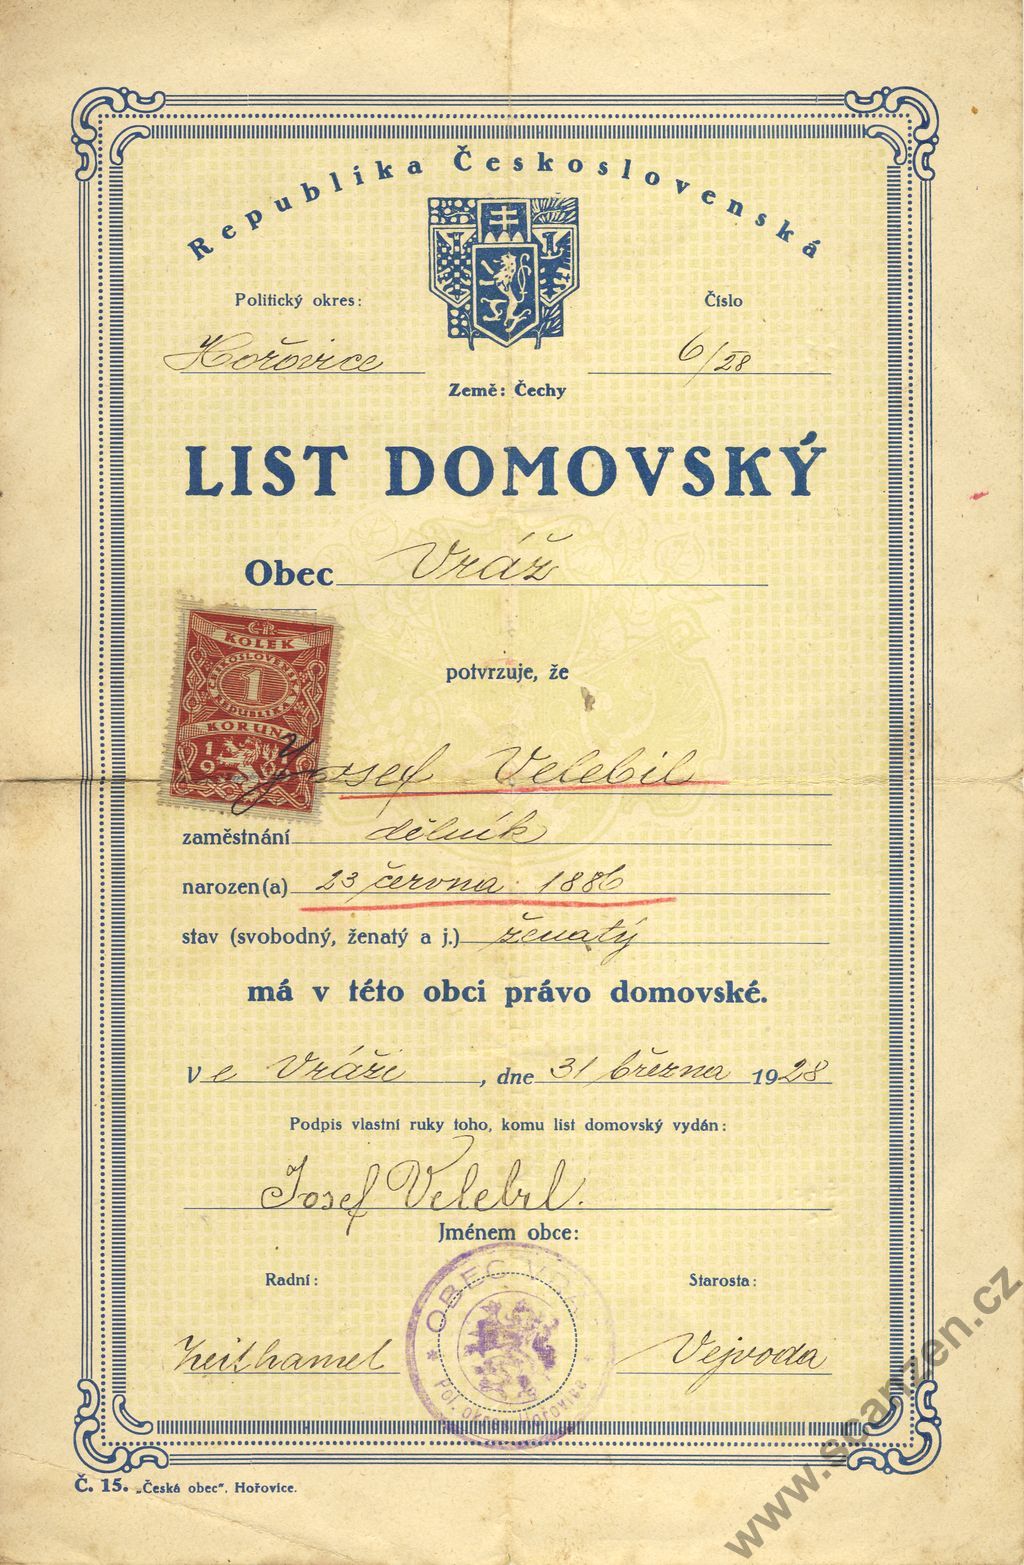 Republika Československá
Politický okres:
Číslo
Hořovice
6/28
Země: Čechy
LIST DOMOVSKÝ
Obec Vráž
ČR
KOLEK
ČESKOSLOVENSKÁ
1
REPUBLIKA
KORUNA
19
potvrzuje, že
Josef Velebil
zaměstnání dělník
narozen(a) 23 června 1886
stav (svobodný, ženatý a j.) ženatý
má v této obci právo domovské.
Ve Vráži, dne 31 března 1928
Podpis vlastní ruky toho, komu list domovský vydán:
Josef Velebil.
Jménem obce:
Radní:
Starosta:
OBEC VRÁŽ
Pol. okres Hořovice
Vejvoda
Č. 15. „Česká obec“, Hořovice.
www.scanzen.cz